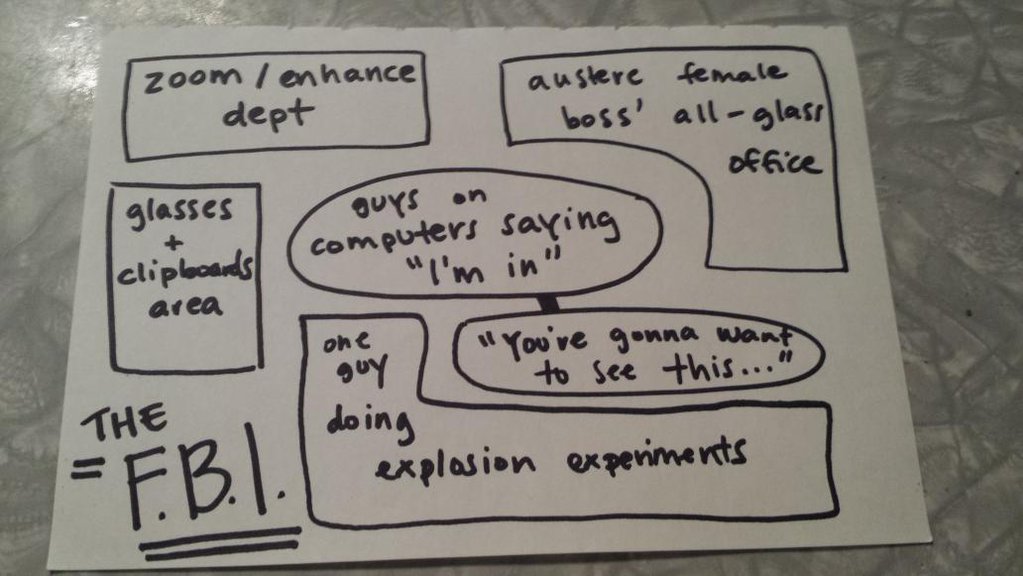 zoom/enhance
dept
austere female
boss' all-glass
office
glasses
+
clipboards
area
guys on
computers saying
"I'm in"
"You're gonna want
to see this..."
one
guy
doing
explosion experiments
THE
= F.B.I.